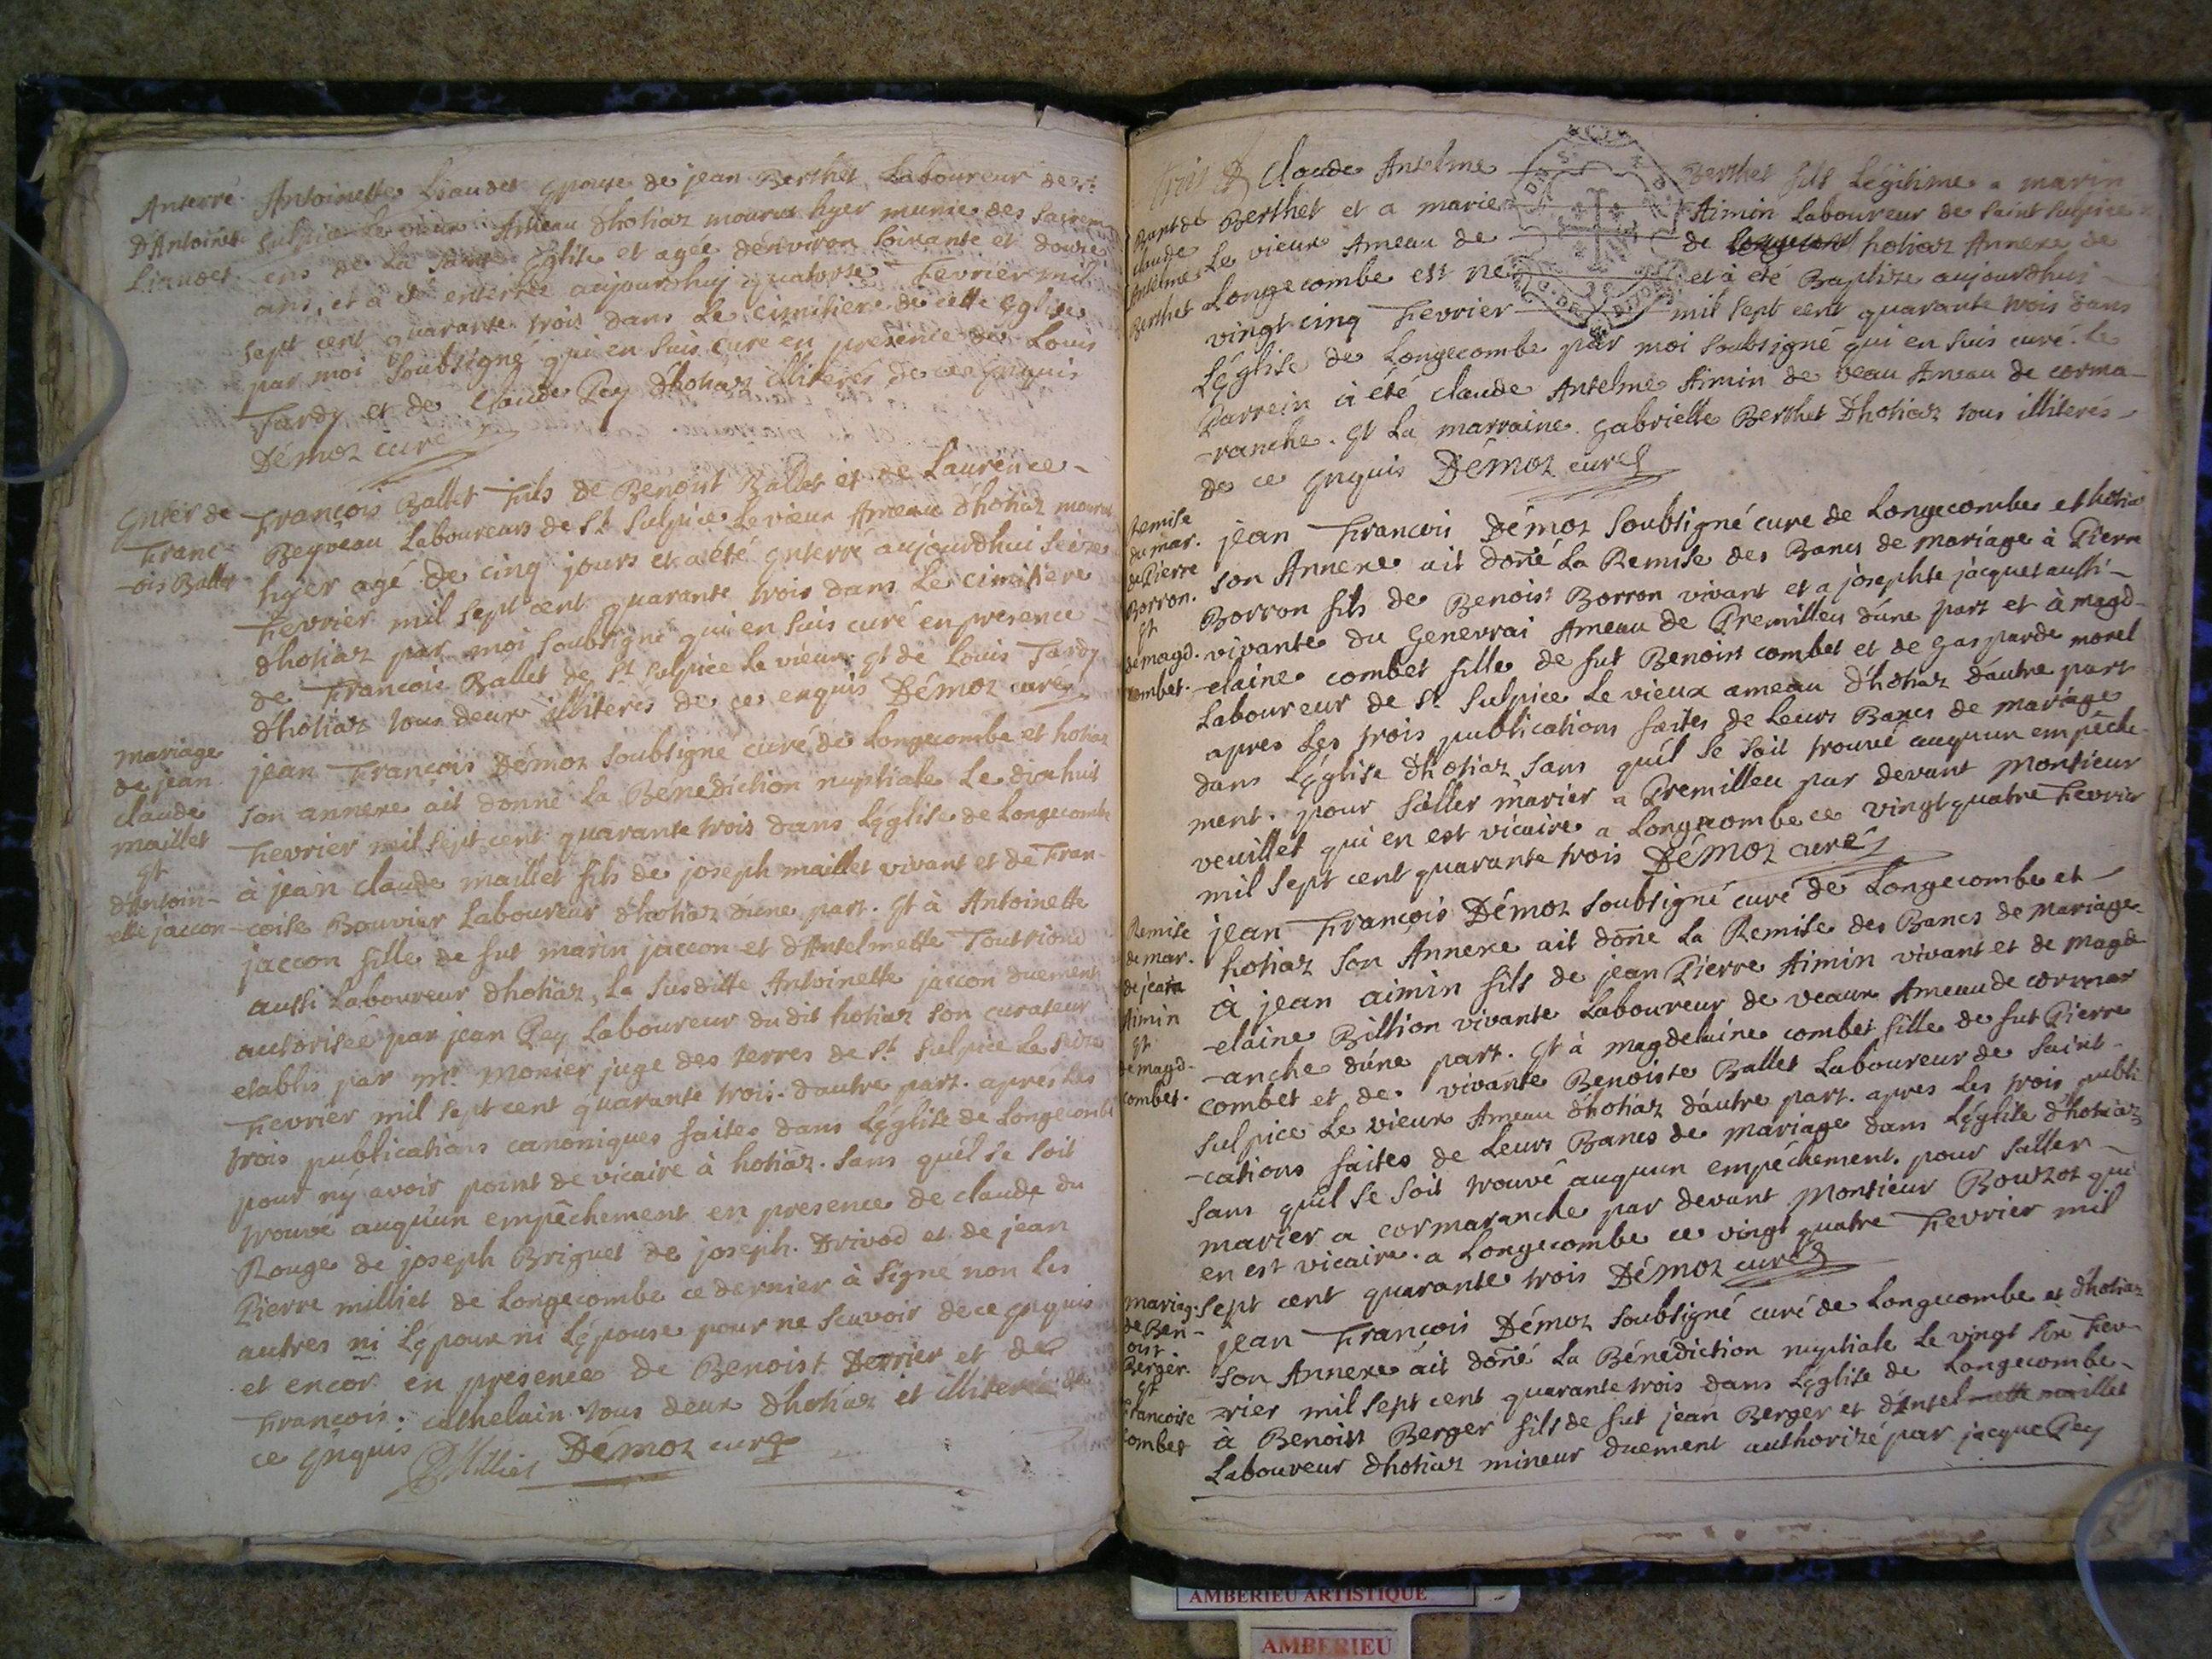 Anterré
D'Antoinet
Liaudet
Antoinette Liaudet Epouse de jean Berthet Laboureur de St
Sulpice Le vieux Ameau dhotiaz mourut hyer munie des Sacrem
ens de La Sainte Eglise et agée denviron Soixante et douze
ans, et à été enterrée aujourdhuj quatorze Fevrier mil
sept cent quarante trois dans Le cimitiere de cette Eglise
par moi Soubsigné qui en Suis curé en presence de Louis
Tardy et de Claude Pey dhotiaz illiterés de ce Enquis
Démoz curé
Enter de
Franc-
-ois Ballet
François Ballet Fils de Benoist Ballet et de Laurence-
Beyveau Laboureurs de St Sulpice Le vieux Ameau dhotiaz mourut
hyer agé de cinq jours et a été Enterré aujourdhui Seize
Fevrier mil sept cent quarante trois dans Le cimitiere
dhotiaz par moi soubsigné qui en suis curé en presence
de Francois Ballet de St Sulpice Le vieux Et de Louis Tardy
dhotiaz tous deux illiterés de ce enquis Démoz curé
mariage
de jean
claude
maillet
Et
dAntoin-
ette jaccon
jean Francois Démoz Soubsigné curé de Longecombe et hotiaz
Son annexe ait donné La Benediction nuptiale Le dixhuit
Fevrier mil sept cent quarante trois dans LEglise de Longecombe
à jean claude maillet fils de joseph maillet vivant et de Fran-
-coise Bouvier Laboureur dhotiaz dune part. Et à Antoinette
jaccon fille de fut marin jaccon et dAntelmette Toutriond
aussi Laboureur dhotiaz, La Susditte Antoinette jaccon duement
autorisée par jean Pey Laboureur du dit hotiaz Son curateur
etablis par Mr monier juge des terres de St Sulpice Le Seize
Fevrier mil sept cent quarante trois. dautre part. apres Les
trois publications canoniques faites dans LEglise de Longecombe
pour ny avoir point de vicaire à hotiaz. Sans quél se soit
trouvé auqu'un empêchement en presence de claude du
Rouge de joseph Briguet de joseph. Drivod et de jean
Pierre milliet de Longecombe ce dernier à Signe non Les
autres ni LEpoux ni LEpouse pour ne Scavoir de ce Enquis
et encor en presence de Benoist Derrier et de
François. cathelain tous deux dhotiaz et illiterés de
ce Enquis Milliet Démoz curé
Bapt de
claude
Antelme
Berthet
Claude Antelme Berthet fils Légitime a marin
Berthet et a marie Aimin Laboureur de Saint Sulpice
Le vieux Ameau de de hotiaz Annexe de
Longecombe est né et à été Baptize aujourdhui
vingt cinq Fevrier mil sept cent quarante trois dans
LEglise de Longecombe par moi soubsigné qui en suis curé. Le
Parrein à été claude Antelme Aimin de veau Ameau de corma-
-ranche. Et La marraine Gabrielle Berthet Dhotiaz tous illiterés-
de ce Enquis Démoz curé
Remise
du mar.
de Pierre
Borron.
Et
de magd.
combet.
jean Francois Démoz Soubsigné cure de Longecombe et hotiaz
son Annexe ait doñé La Remise des Bancs de mariage à Pierre
Borron fils de Benoist Borron vivant et a josephte jacquet aussi-
vivante du Genevrai Ameau de Premilleu dúne part et à magd-
-elaine combet fille de fut Benoist combet et de Gasparde morel
Laboureur de St Sulpice Le vieux ameau dhotiaz dáutre part
apres Les trois publications faites de Leurs Bancs de mariage
dans LEglise dhotiaz Sans quil se soit trouvé auquun empêche-
ment. pour Sáller marier a Premilleu par devant Monsieur
veuillet qui en est vicaire a Longecombe ce vingt quatre Fevrier
mil sept cent quarante trois Démoz curé
Remise
du mar.
de jean
Aimin
Et
de magd-
combet.
jean François Démoz soubsigné curé de Longecombe et
hotiaz Son Annexe ait doñé La Remise des Bancs de Mariage
à jean aimin fils de jean Pierre Aimin vivant et de magd-
-elaine Billion vivante Laboureur de veaux Ameau de cormar
-anche dúne part. Et à magdelaine combet fille de fut Pierre
combet et de. vivante Benoiste Ballet Laboureur de Saint-
Sulpice Le vieux Ameau dhotiaz dáutre part. apres Les trois publi
-cations faites de Leurs Bancs de mariage dans LEglise dhotiaz
sans quil se soit trouvé auquun empéchement. pour Saller-
marier a cormaranche par devant Monsieur Bouzot qui
en est vicaire. a Longecombe ce vingt quatre Fevrier mil
sept cent quarante trois Démoz curé
mariag.
de Ben-
oist
Berger.
Et
Francoise
combet
jean Francois Démoz soubsigné curé de Longecombe et dhotiaz
son Annexe áit doñé La Bénediction nuptiale Le vingt six Fev-
-rier mil sept cent quarante trois dans LEglise de Longecombe-
à Benoist Berger fils de fut jean Berger et dAntelmette maillet
Laboureur dhotiaz mineur duement authorizé par jacque Pey
AMBERIEU ARTISTIQUE
AMBERIEU